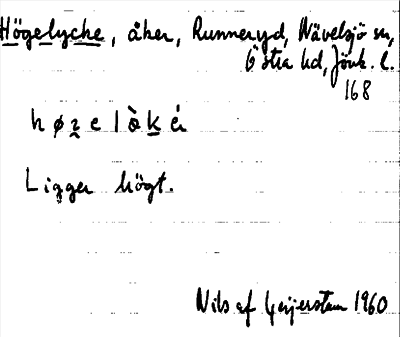 Högelycke, åker, Runneryd, Nävelsjö sn,
Östra hd, Jönk. l.
168
Ligger högt.
Nils af Geijerstam 1960